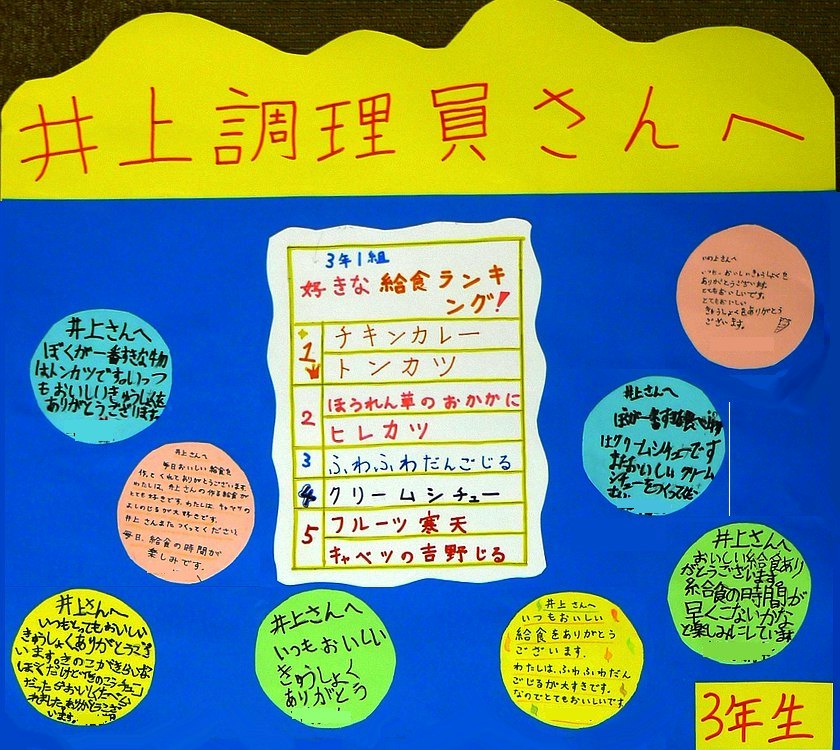 井上調理員さんへ
3年1組
好きな給食ランキ
ング!
1
チキンカレー
トンカツ
2
ほうれん草のおかかに
ヒレカツ
3 ふわふわだんごじる
4 クリームシチュー
5
フルーツ寒天
キャベツの吉野じる
井上さんへ
ぼくが一番すきな物
はトンカツです。いっつ
もおいしいきゅうしょくを
ありがとうございます
井上さんへ
毎日おいしい給食を
作ってくれてありがとうございます
わたしは、井上さんの作る給食が
とても好きです。わたしは、キャベツの
よしのじるが大好きです。
井上さんまたつくってください
毎日、給食の時間が
楽しみです。
井上さんへ
いつもとってもおいしい
きゅうしょくありがとうござ
います。きのこがきらいな
ぼくだけど
井上さんへ
いつもおいしい
きゅうしょく
ありがとう
井上さんへ
いつもおいしい
給食をありがとう
ございます。
わたしは、ふわふわだん
ごじるが大すきです。
なのでとてもおいしいです。
井上さんへ
いつも、おいしいきゅうしょくを
ありがとうございます。
とてもおいしいです。
とてもおいしい
きゅうしょくをありがとう
ございます。
井上さんへ
ぼくが一番すきな食べ物
はクリームシチューです
クリーム
シチューをつくって
井上さんへ
おいしい給食あり
がとうございます。
給食の時間が
早くこないかな
と楽しみにしています
3年生